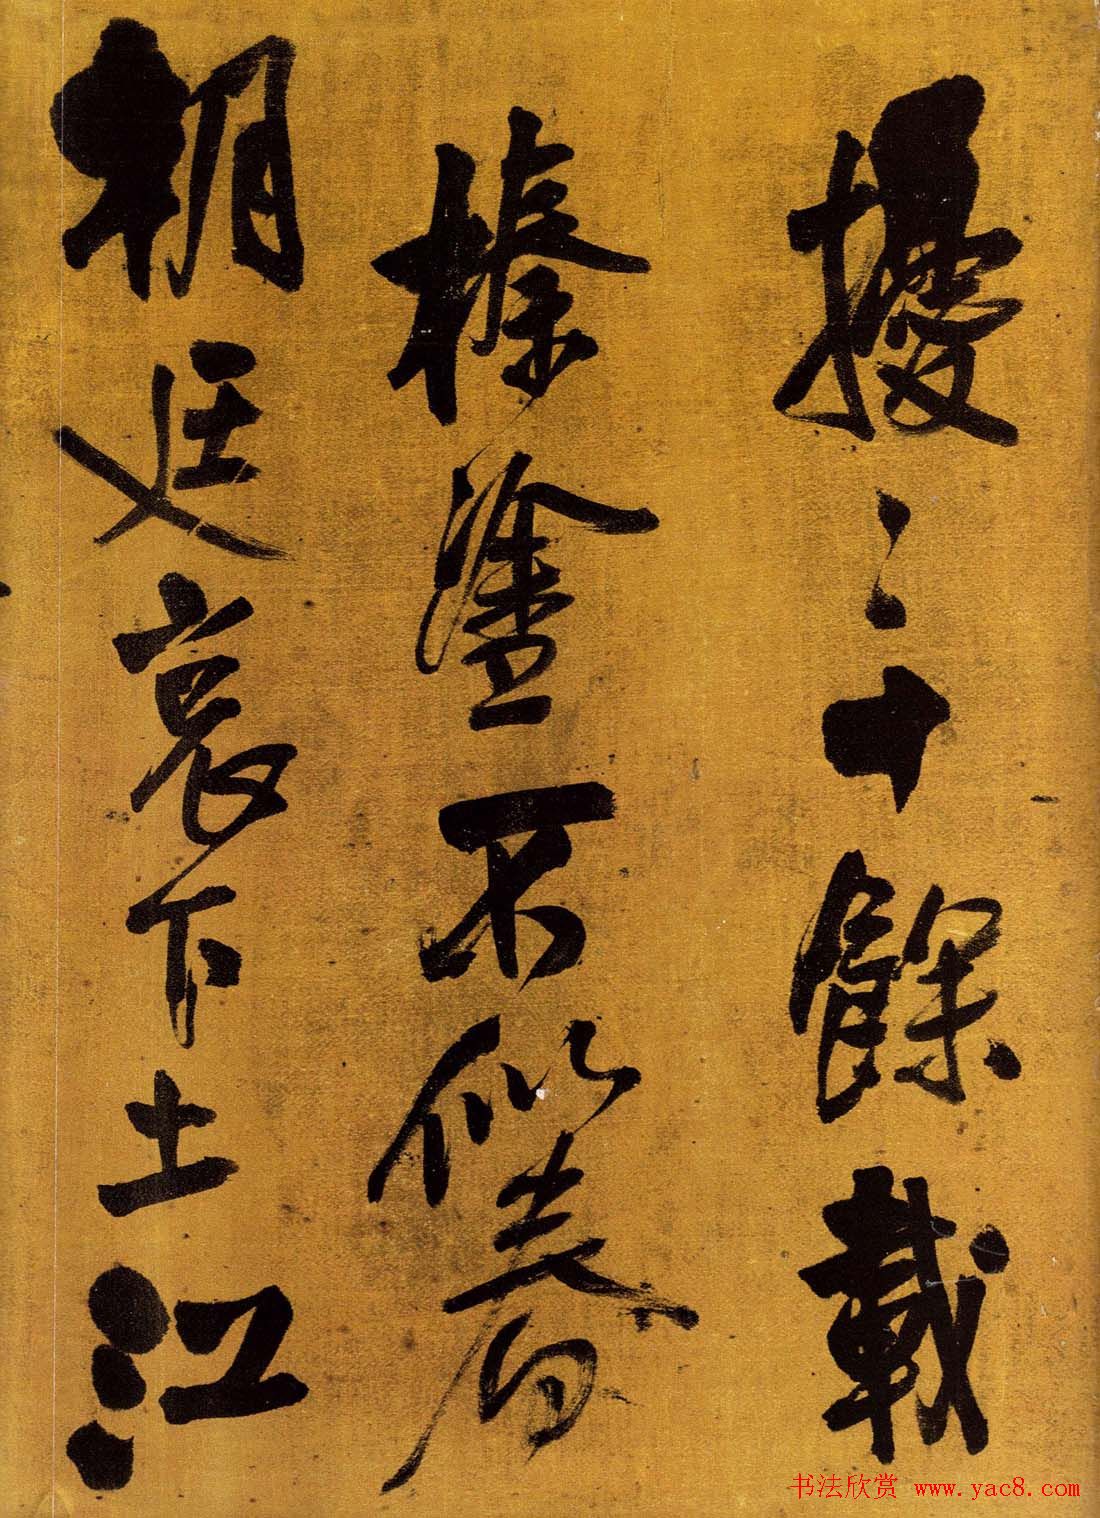 擾〻十餘載
榛塗不似春
朝廷哀下土江
书法欣赏 www.yac8.com